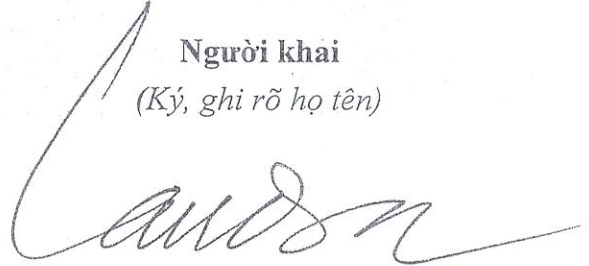 Người khai
(Ký, ghi rõ họ tên)